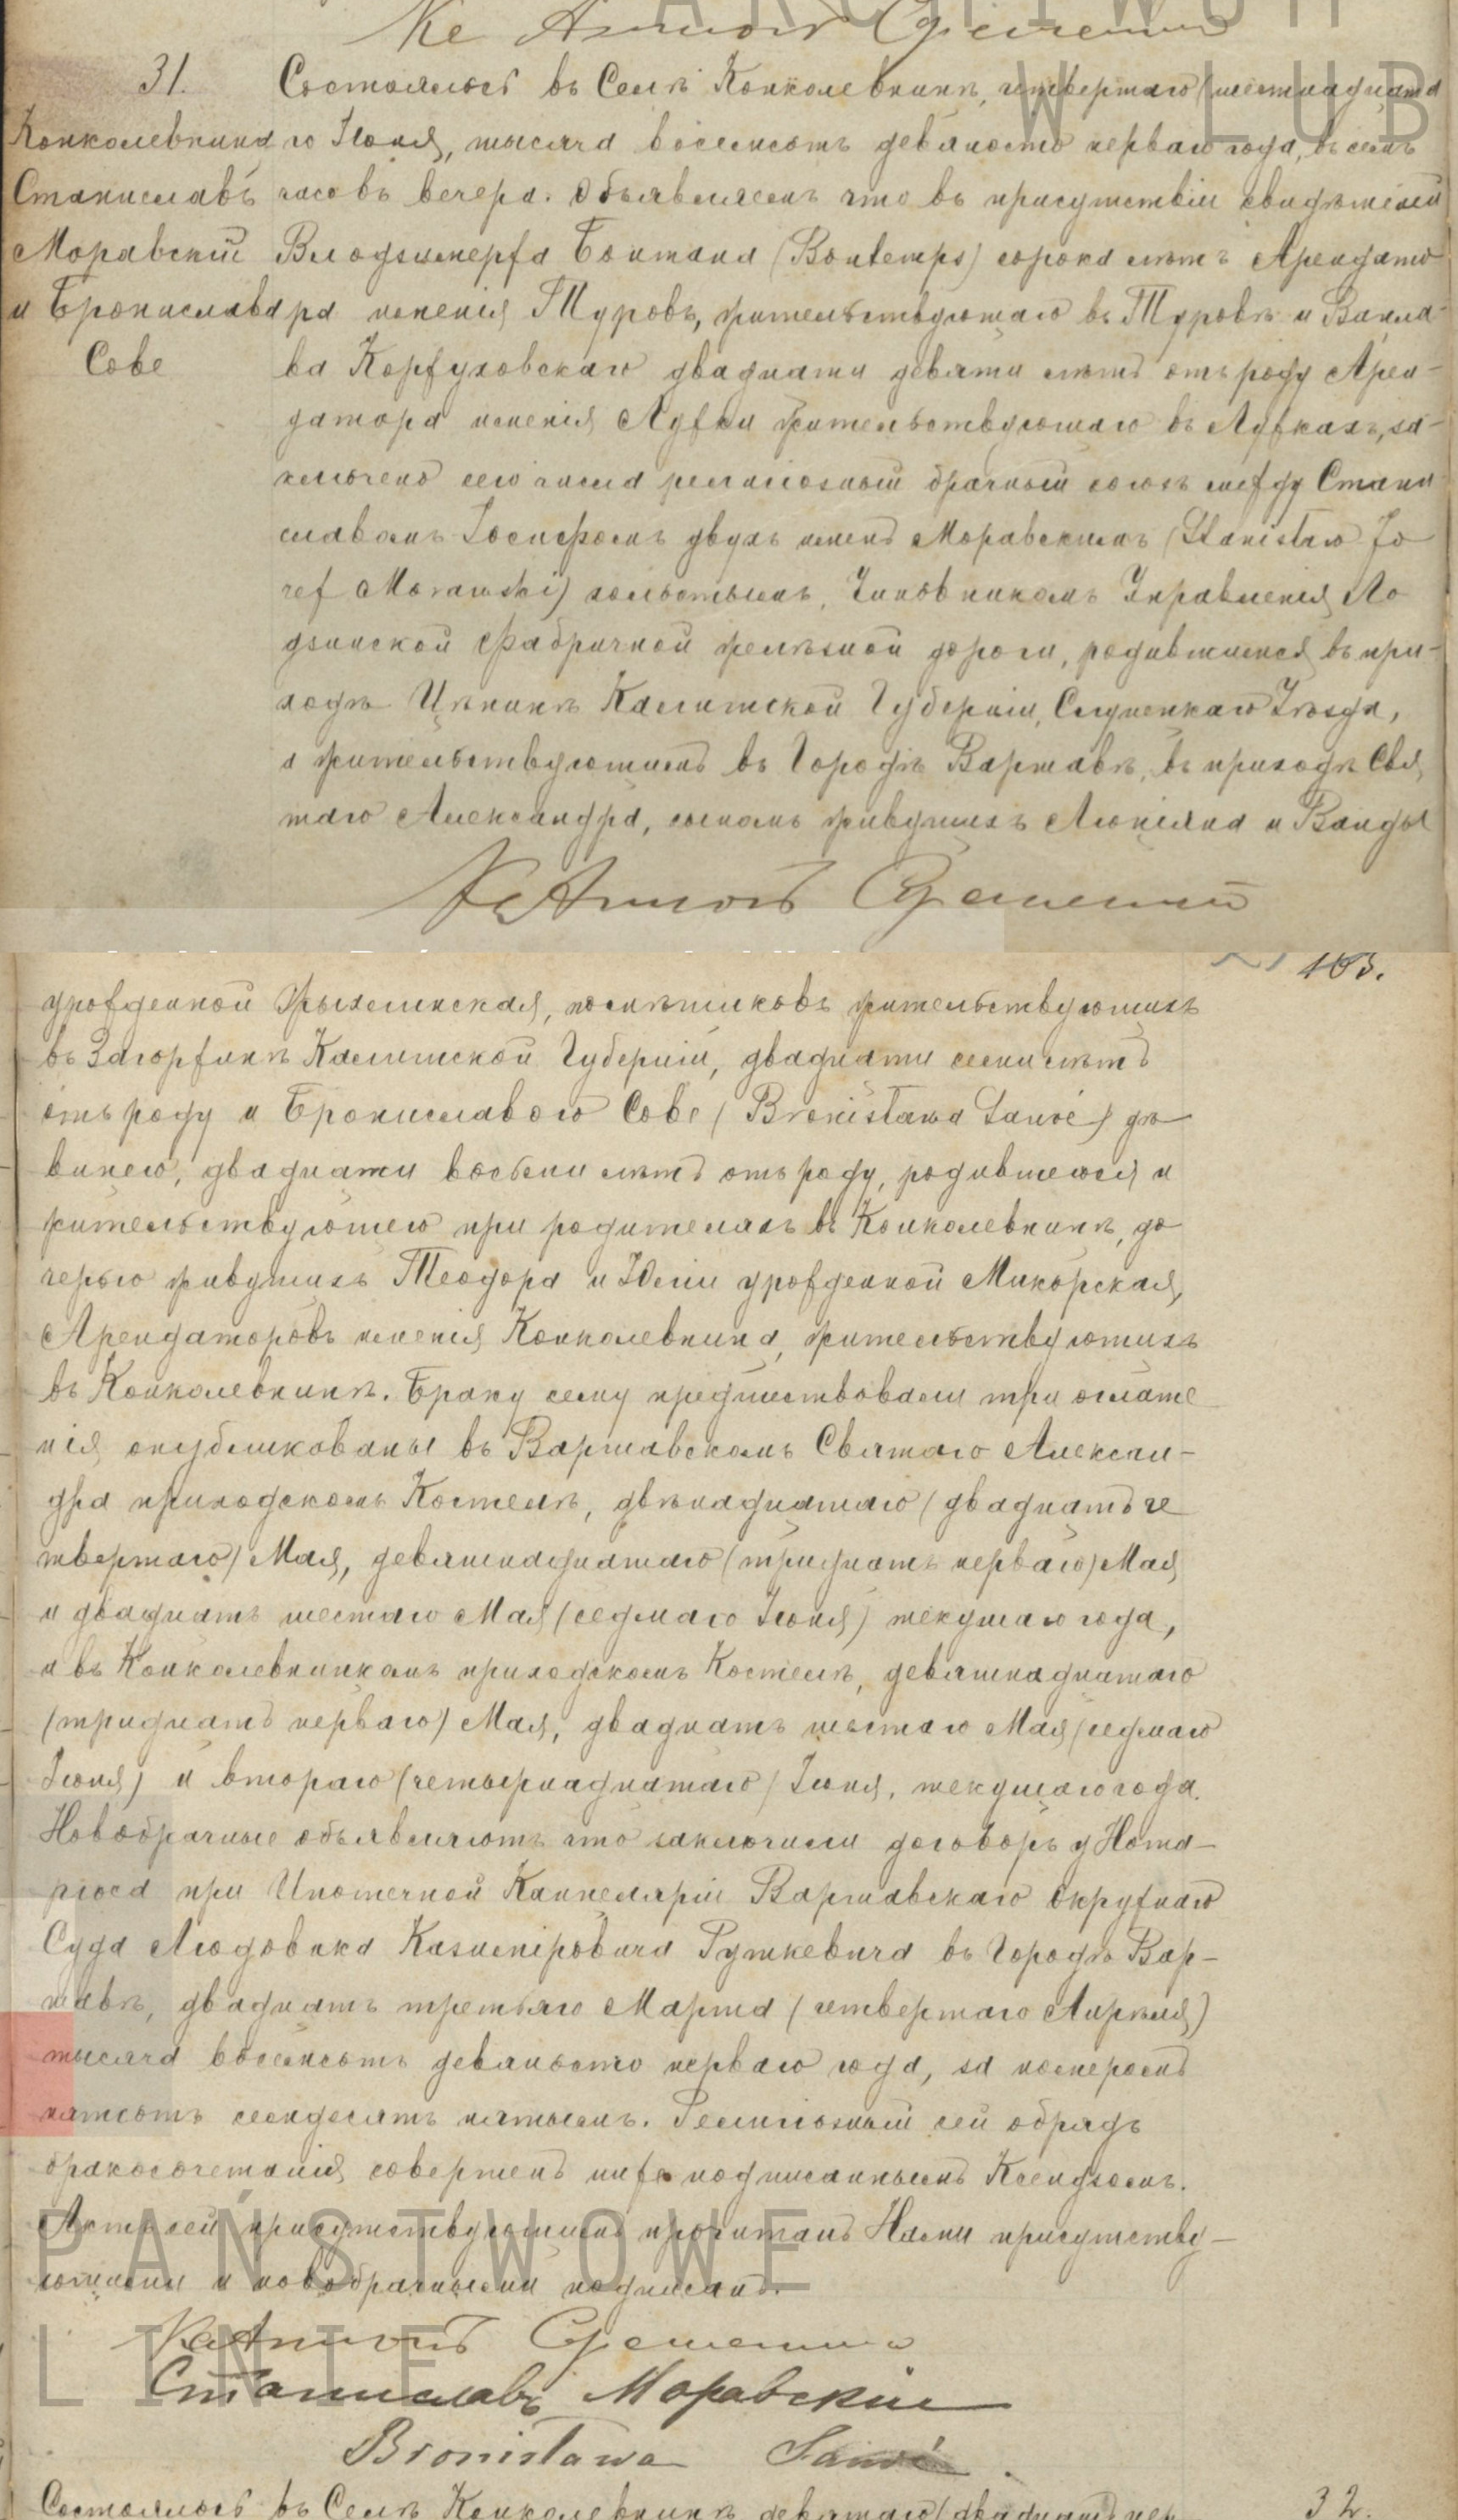 Кс Антонъ
31.
Конколевница
Станиславъ
Моравскій
и Бронислава
Сове
Состоялось въ Селѣ Конколевницѣ, четвертаго (шестнадцата
го Іюня, тысяча восемьсотъ девяносто перваго года, въ семь
часовъ вечера. Объявляемъ что въ присутствіи свидѣтелей
Влодзимержа Бонтана (Bontemps) сорока лѣтъ Арендато
ра имѣнія Туровъ, жительствующаго въ Туровѣ и Вацла-
ва Коржуховскаго двадцати девяти лѣтъ отъ роду Арен-
датора имѣнія Лужки жительствующаго въ Лужкахъ, за-
ключенъ сего числа религіозный брачный союзъ между Стани
славомъ Іосифомъ двухъ именъ Моравскимъ (Stanisław Jó
zef Morawski) холостымъ, Чиновникомъ Управленія Ло
дзинской Фабричной желѣзной дороги, родившимся въ при-
ходѣ Цѣнинъ Калишской Губерніи, Слупецкаго Уѣзда,
а жительствующимъ въ Городѣ Варшавѣ, въ приходѣ Свя
таго Александра, сыномъ живущихъ Люціяна и Ванды
Кс Антонъ
103.
урожденной Рыхлинская, помѣщиковъ жительствующихъ
въ Загоржинѣ Калишской Губерніи, двадцати семи лѣтъ
отъ роду и Брониславою Сове (Bronisława Sauvé) дѣ
вицею, двадцати восьми лѣтъ отъ роду, родившеюся и
жительствующею при родителяхъ въ Конколевницѣ, до
черью живущихъ Теодора и Юліи урожденной Микорская,
Арендаторовъ имѣнія Конколевница, жительствующихъ
въ Конколевницѣ. Браку сему предшествовали три оглаше
нія опубликованы въ Варшавскомъ Святаго Алексан-
дра приходскомъ Костелѣ, двѣнадцатаго (двадцать че
твертаго) Мая, девятнадцатаго (тридцать перваго) Мая
и двадцать шестаго Мая (седмаго Іюня) текущаго года,
и въ Конколевницкомъ приходскомъ Костелѣ, девятнадцатаго
(тридцать перваго) Мая, двадцать шестаго Мая (седмаго
Іюня) и втораго (четырнадцатаго) Іюня, текущаго года.
Новобрачные объявляютъ что заключили договоръ у Нота-
ріюса при Ипотечной Канцеляріи Варшавскаго Окружнаго
Суда Людовика Казиміровича Руткевича въ Городѣ Вар-
шавѣ, двадцать третьяго Марта (четвертаго Апрѣля)
тысяча восемьсотъ девяносто перваго года, за номеромъ
пятьсотъ семдесятъ пятымъ. Религіозный сей обрядъ
бракосочетанія совершенъ ниже подписаннымъ Ксендзомъ.
Актъ сей присутствующимъ прочитанъ Нами присутству-
ющими и новобрачными подписанъ.
Кс Антонъ
Станиславъ Моравскій
Bronisława Sauvé
Состоялось въ Селѣ Конколевницѣ девятаго (двадцать пер
32.
W LUB
PAŃSTWOWE
LINIE